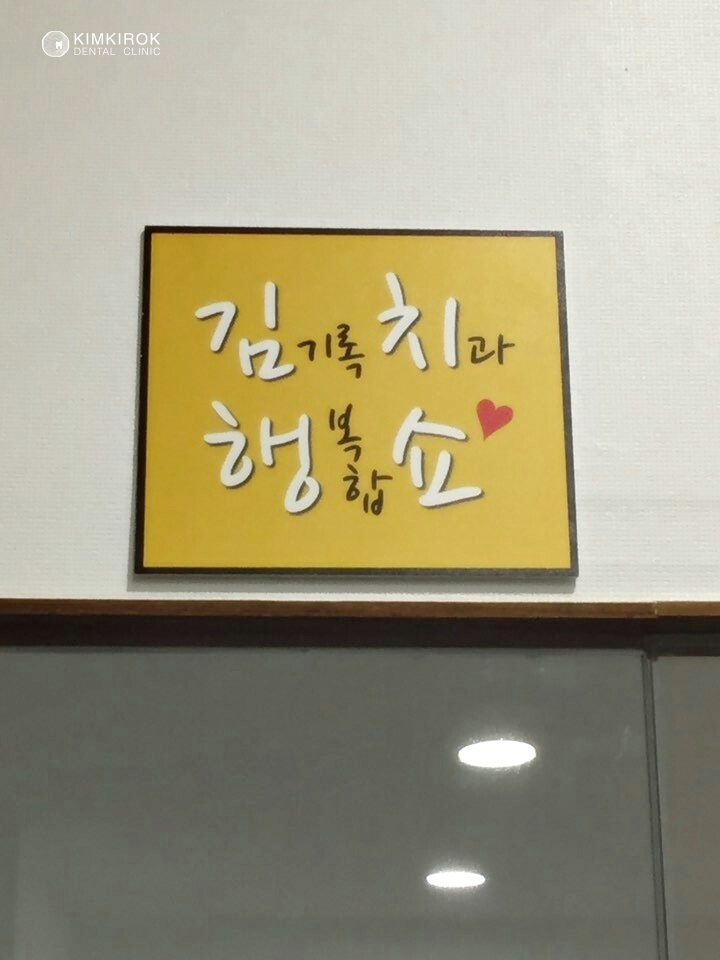 KIMKIROK
DENTAL CLINIC
김기록 치과
행복합쇼